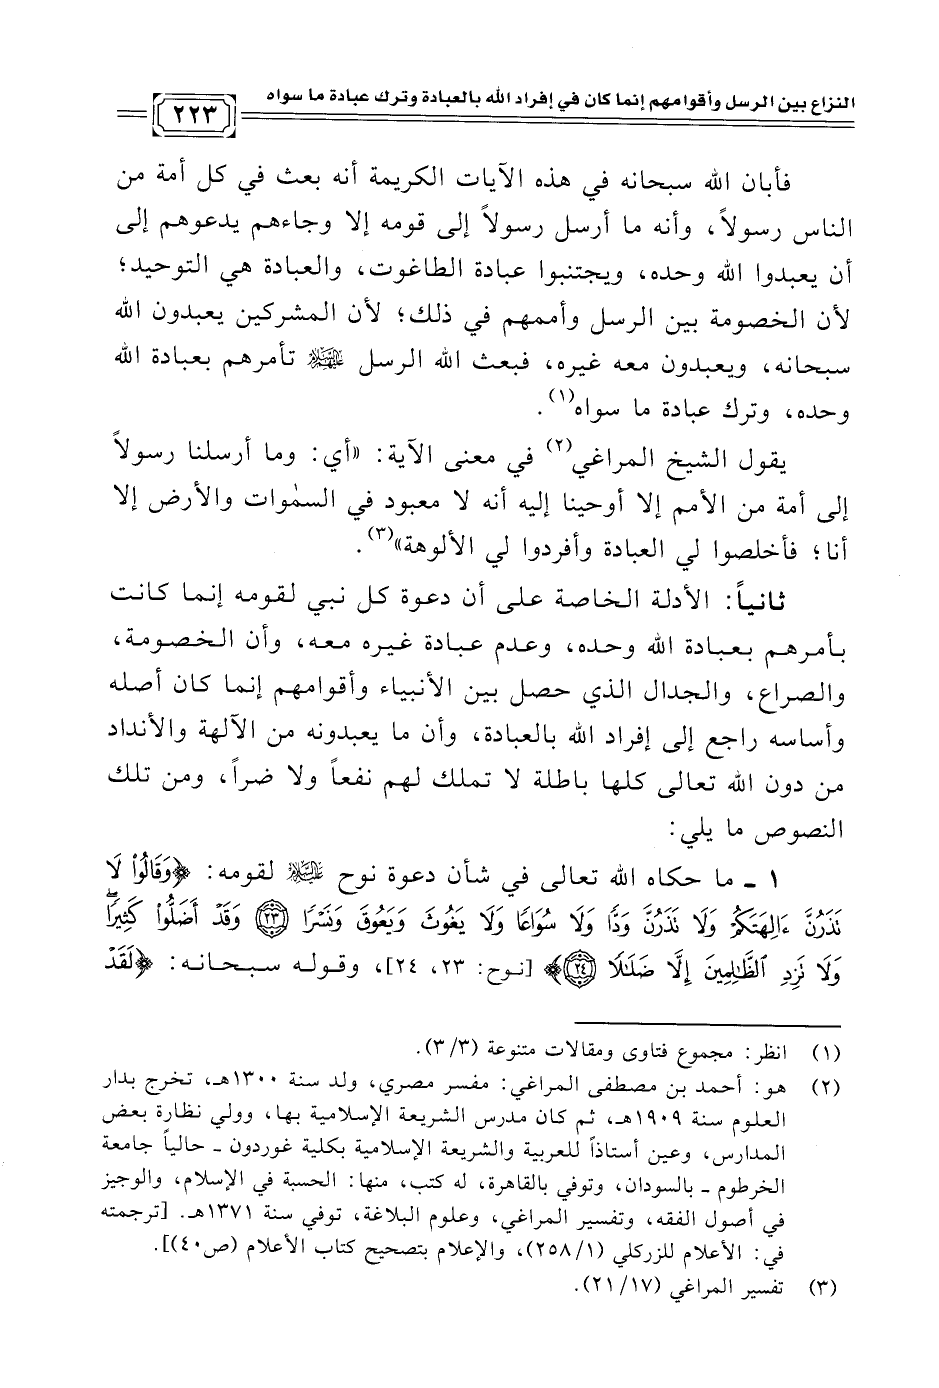 النزاع بين الرسل وأقوامهم إنما كان في إفراد الله بالعبادة وترك عبادة ما سواه
٢٢٣
فأبان الله سبحانه في هذه الآيات الكريمة أنه بعث في كل أمة من
الناس رسولاً، وأنه ما أرسل رسولاً إلى قومه إلا وجاءهم يدعوهم إلى
أن يعبدوا الله وحده، ويجتنبوا عبادة الطاغوت، والعبادة هي التوحيد؛
لأن الخصومة بين الرسل وأممهم في ذلك؛ لأن المشركين يعبدون الله
سبحانه، ويعبدون معه غيره، فبعث الله الرسل عليهم السلام تأمرهم بعبادة الله
وحده، وترك عبادة ما سواه(١).
يقول الشيخ المراغي(٢) في معنى الآية: «أي: وما أرسلنا رسولاً
إلى أمة من الأمم إلا أوحينا إليه أنه لا معبود في السمٰوات والأرض إلا
أنا؛ فأخلصوا لي العبادة وأفردوا لي الألوهة»(٣).
ثانياً: الأدلة الخاصة على أن دعوة كل نبي لقومه إنما كانت
بأمرهم بعبادة الله وحده، وعدم عبادة غيره معه، وأن الخصومة،
والصراع، والجدال الذي حصل بين الأنبياء وأقوامهم إنما كان أصله
وأساسه راجع إلى إفراد الله بالعبادة، وأن ما يعبدونه من الآلهة والأنداد
من دون الله تعالى كلها باطلة لا تملك لهم نفعاً ولا ضراً، ومن تلك
النصوص ما يلي:
١ ـ ما حكاه الله تعالى في شأن دعوة نوح عليه السلام لقومه: ﴿وَقَالُواْ لَا
نَذَرُنَّ ءَالِهَتَكُمْ وَلَا نَذَرُنَّ وَدًّا وَلَا سُوَاعًا وَلَا يَغُوثَ وَيَعُوقَ وَنَسْرًا ٢٣ وَقَدْ أَضَلُّواْ كَثِيرًاۖ
وَلَا نَزِدِ ٱلظَّٰلِمِينَ إِلَّا ضَلَٰلًا ٢٤﴾ [نوح: ٢٣، ٢٤]، وقوله سبحانه: ﴿لَقَدْ
(١) انظر: مجموع فتاوى ومقالات متنوعة (٣/٣).
(٢) هو: أحمد بن مصطفى المراغي: مفسر مصري، ولد سنة ١٣٠٠هـ، تخرج بدار
العلوم سنة ١٩٠٩هـ، ثم كان مدرس الشريعة الإسلامية بها، وولي نظارة بعض
المدارس، وعين أستاذاً للعربية والشريعة الإسلامية بكلية غوردون ـ حالياً جامعة
الخرطوم ـ بالسودان، وتوفي بالقاهرة، له كتب، منها: الحسبة في الإسلام، والوجيز
في أصول الفقه، وتفسير المراغي، وعلوم البلاغة، توفي سنة ١٣٧١هـ. [ترجمته
في: الأعلام للزركلي (١/٢٥٨)، والإعلام بتصحيح كتاب الأعلام (ص٤٠)].
(٣) تفسير المراغي (١٧/٢١).